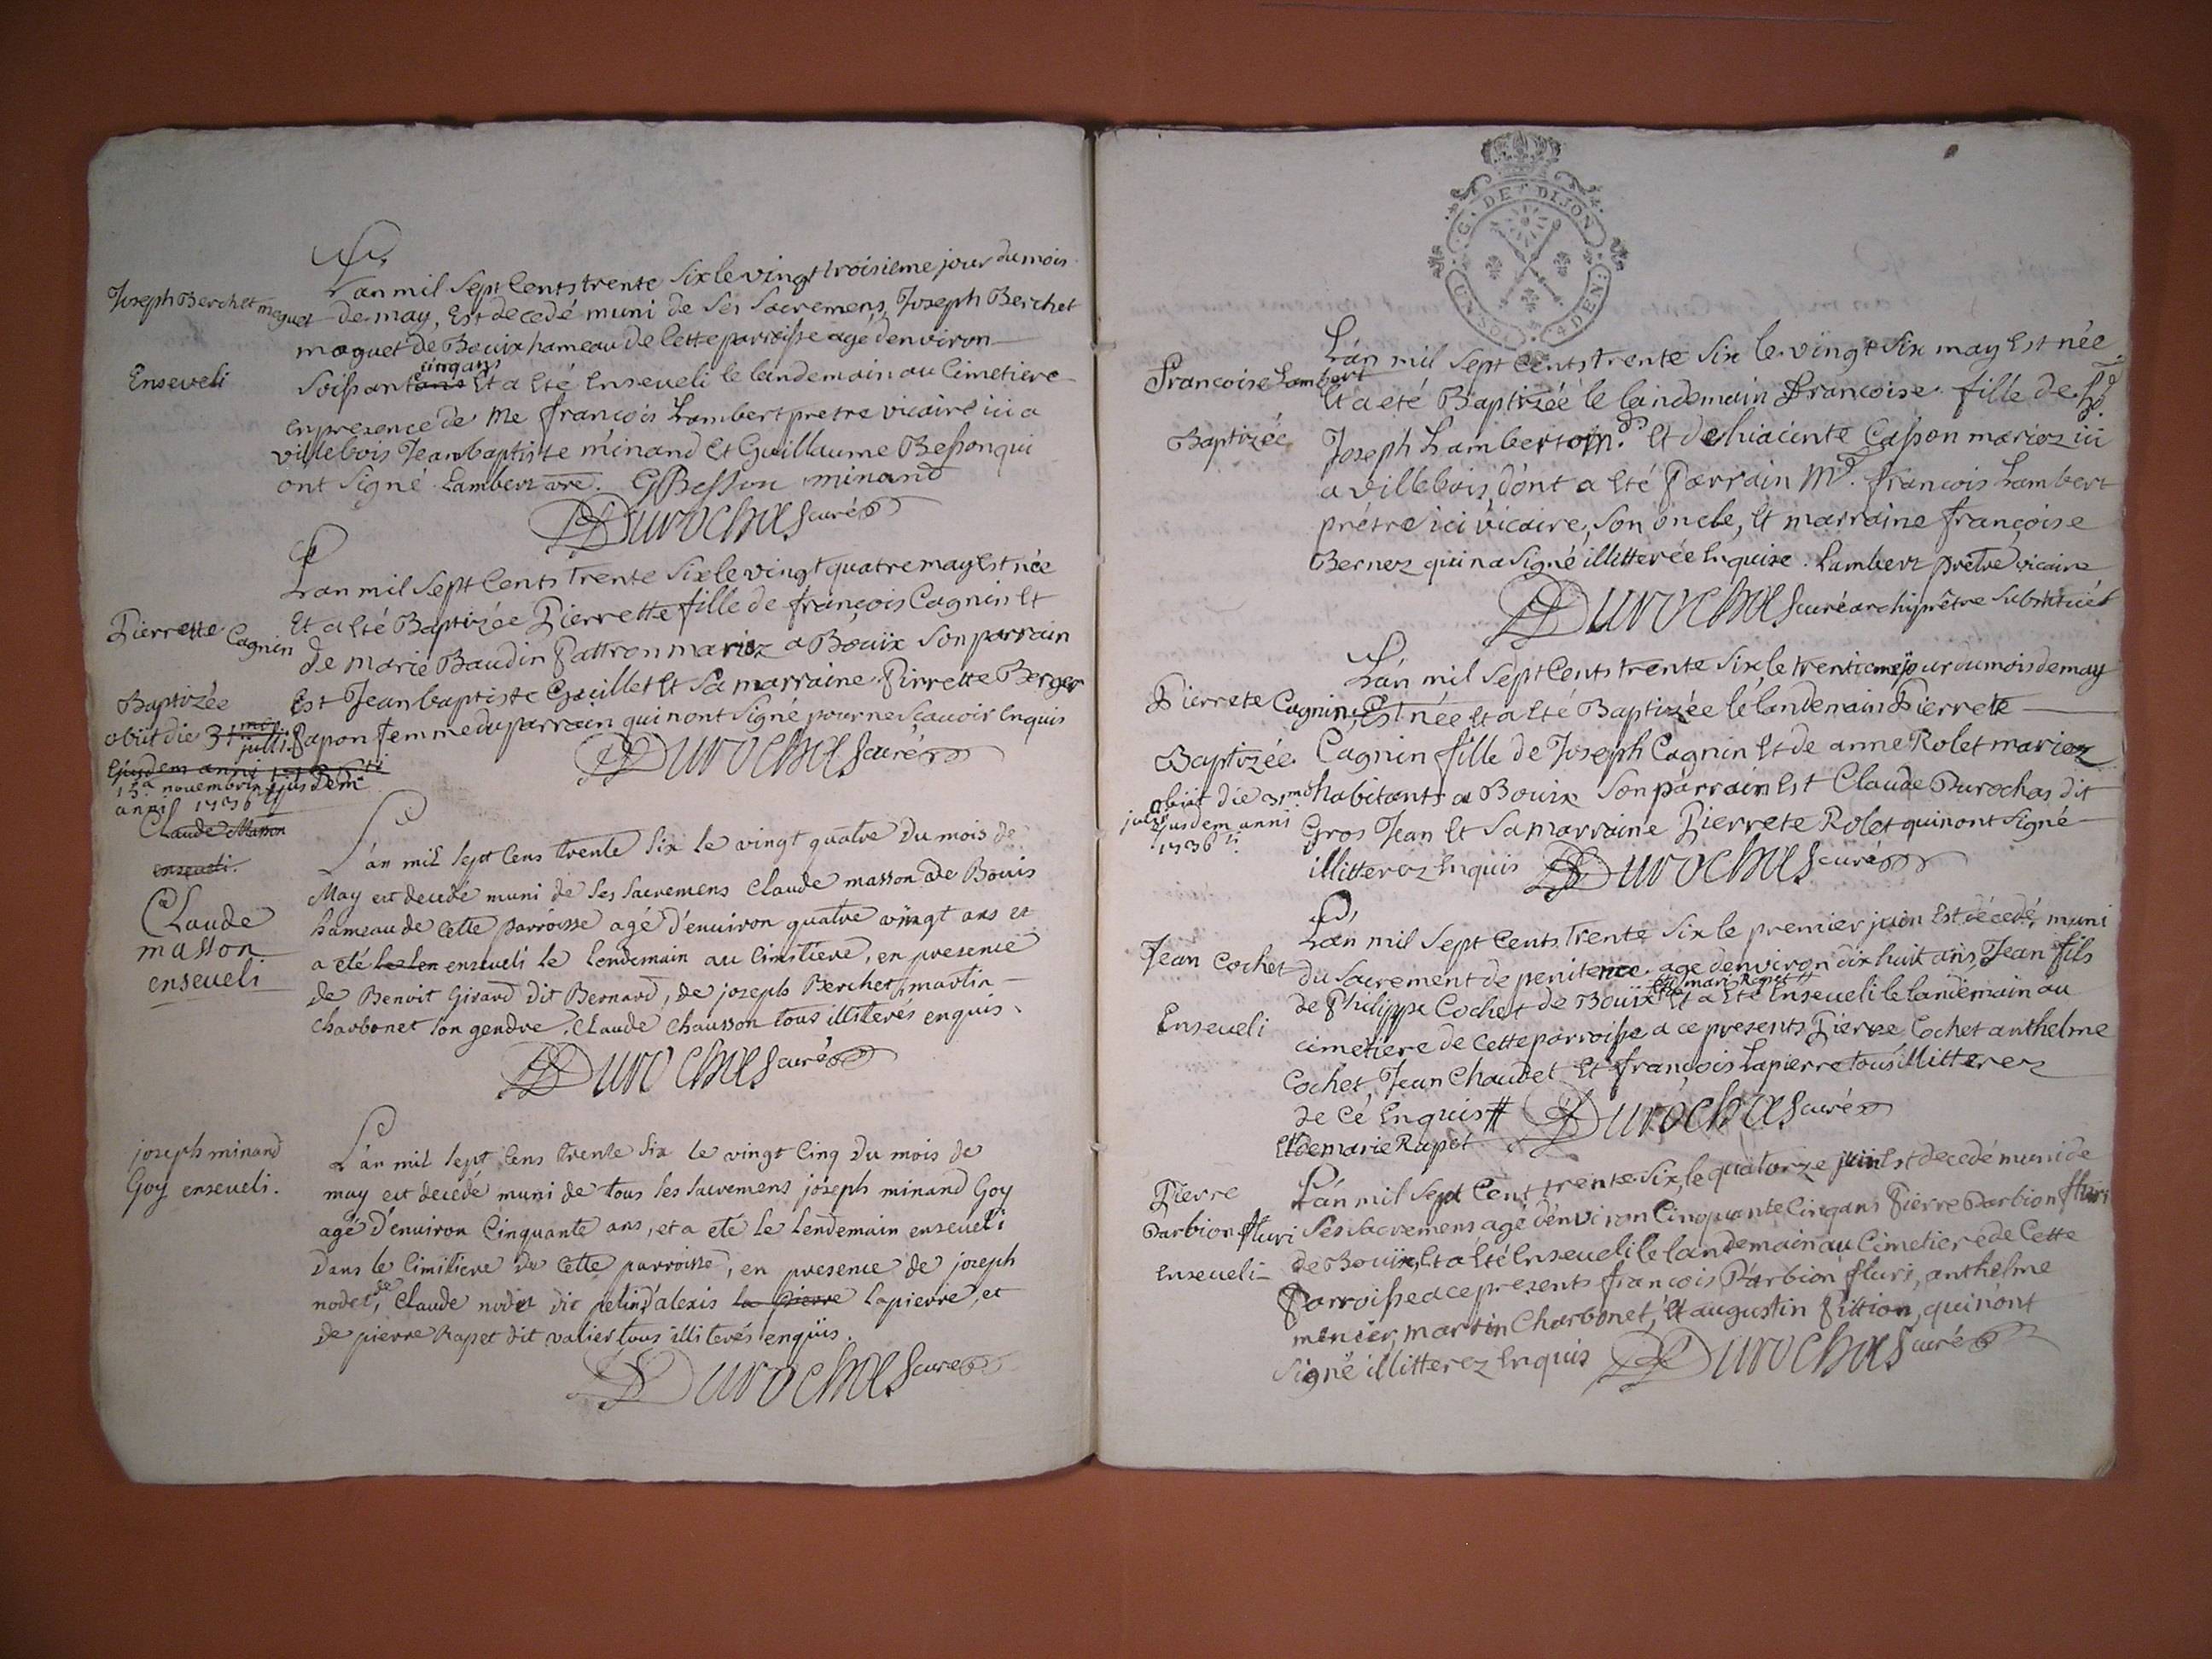 L'an mil sept Cents trente six le vingt troisieme jour du mois
Joseph Berchet moguet
de may, Est decedé muni de ses sacremens, Joseph Berchet
moguet de Bouix hameau de Cette parroisse agé denviron
cinq ans
Enseveli
soissant ans Et a Eté Enseveli le landemain au Cimetiere
en presence de Me françois Lambert pretre vicaire ici a
villebois Jean baptiste minand Et Guillaume Besson qui
ont signé Lambert G Besson minand
Durochas curé
L'an mil sept Cents trente six le vingt quatre may Est née
Pierrette Cagnin
Et a Eté Baptizée Pierrette fille de françois Cagnin Et
de marie Baudin Pattron mariez a Bouix son parrain
Baptizée
Est Jean baptiste Guillet Et sa marraine Pirrette Berger
obiit die 31 may
julli
Papon femme du parrain qui nont signé pour ne scavoir Enquis
Durochas curé
Ejusdem anni 1736
15a novembris Ejusdem
anni 1736
Claude Masson
enseveli.
Claude
masson
enseveli
L'an mil sept Cens trente six le vingt quatre du mois de
May est decedé muni de ses sacremens Claude masson de Bouis
hameau de Cette parroisse agé d'environ quatre vingt ans et
a eté le len enseveli le lendemain au Cimitiere, en presence
de Benoit Girard dit Bernard, de joseph Berchet, martin
Charbonet son gendre, Claude Chausson tous illiterés enquis.
Durochas curé
joseph minand
Goy enseveli.
L'an mil sept Cens trente six le vingt Cinq du mois de
may est decedé muni de tous ses sacremens joseph minand Goy
agé d'environ Cinquante ans, et a eté le lendemain enseveli
dans le Cimitiere de Cette parroisse, en presence de joseph
nodet, de Claude nodet dit pelin, d'alexis la pierre lapierre, et
de pierre Rapet dit valier tous illiterés enquis.
Durochas curé
G. DE DIJON
UNSOL 4 DEN:
L'an mil sept Cents trente six le vingt six may Est née
Francoise Lambert
Et a eté Baptizée le landemain Francoise fille de
Baptizée
Joseph Lambert Et de hiacinte Casson mariez ici
a villebois, dont a Eté Parrain Mre. francois Lambert
prétre ici vicaire, son oncle, Et marraine françoise
Bernez qui na signé illitterée Enquise. Lambert prêtre vicaire
Durochas curé archiprêtre substitué
L'an mil sept Cents trente six, le trentieme jour du mois de may
Pierrete Cagnin
Est née Et a Eté Baptizée le landemain Pierrete
Baptizée
Cagnin fille de Joseph Cagnin Et de anne Rolet mariez
obiit die 31
habitants a Bouix son parrain Est Claude Durochas dit
julii
Ejusdem anni
1736
Gros Jean Et sa marraine Pierrete Rolet qui nont signé
illitterez Enquis Durochas curé
L'an mil sept Cents trente six le premier juin Est décedé, muni
Jean Cochet
du sacrement de penitence agé denviron dix huit ans Jean fils
de Philippe Cochet de Bouix Et a Eté Enseveli le landemain au
Enseveli
cimetiere de Cette parroisse a ce presents Pierre Cochet anthelme
Cochet, Jean Chaudet Et françois Lapierre tous illitterez
de Cé Enquis # Durochas curé
Et de marie Rapet
L'an mil sept Cent trente six, le quatorze juin Est decedé muni de
Pierre
Darbion fluri
ses sacremens agé denviron Cinquante Cinq ans Pierre Darbion fluri
Enseveli
de Bouix, Et a Eté Enseveli le landemain au Cimetiere de Cette
Parroisse a ce presents françois Darbion fluri, anthelme
mencier, martin Charbonet, Et augustin fittion, qui nont
signé illitterez Enquis Durochas curé